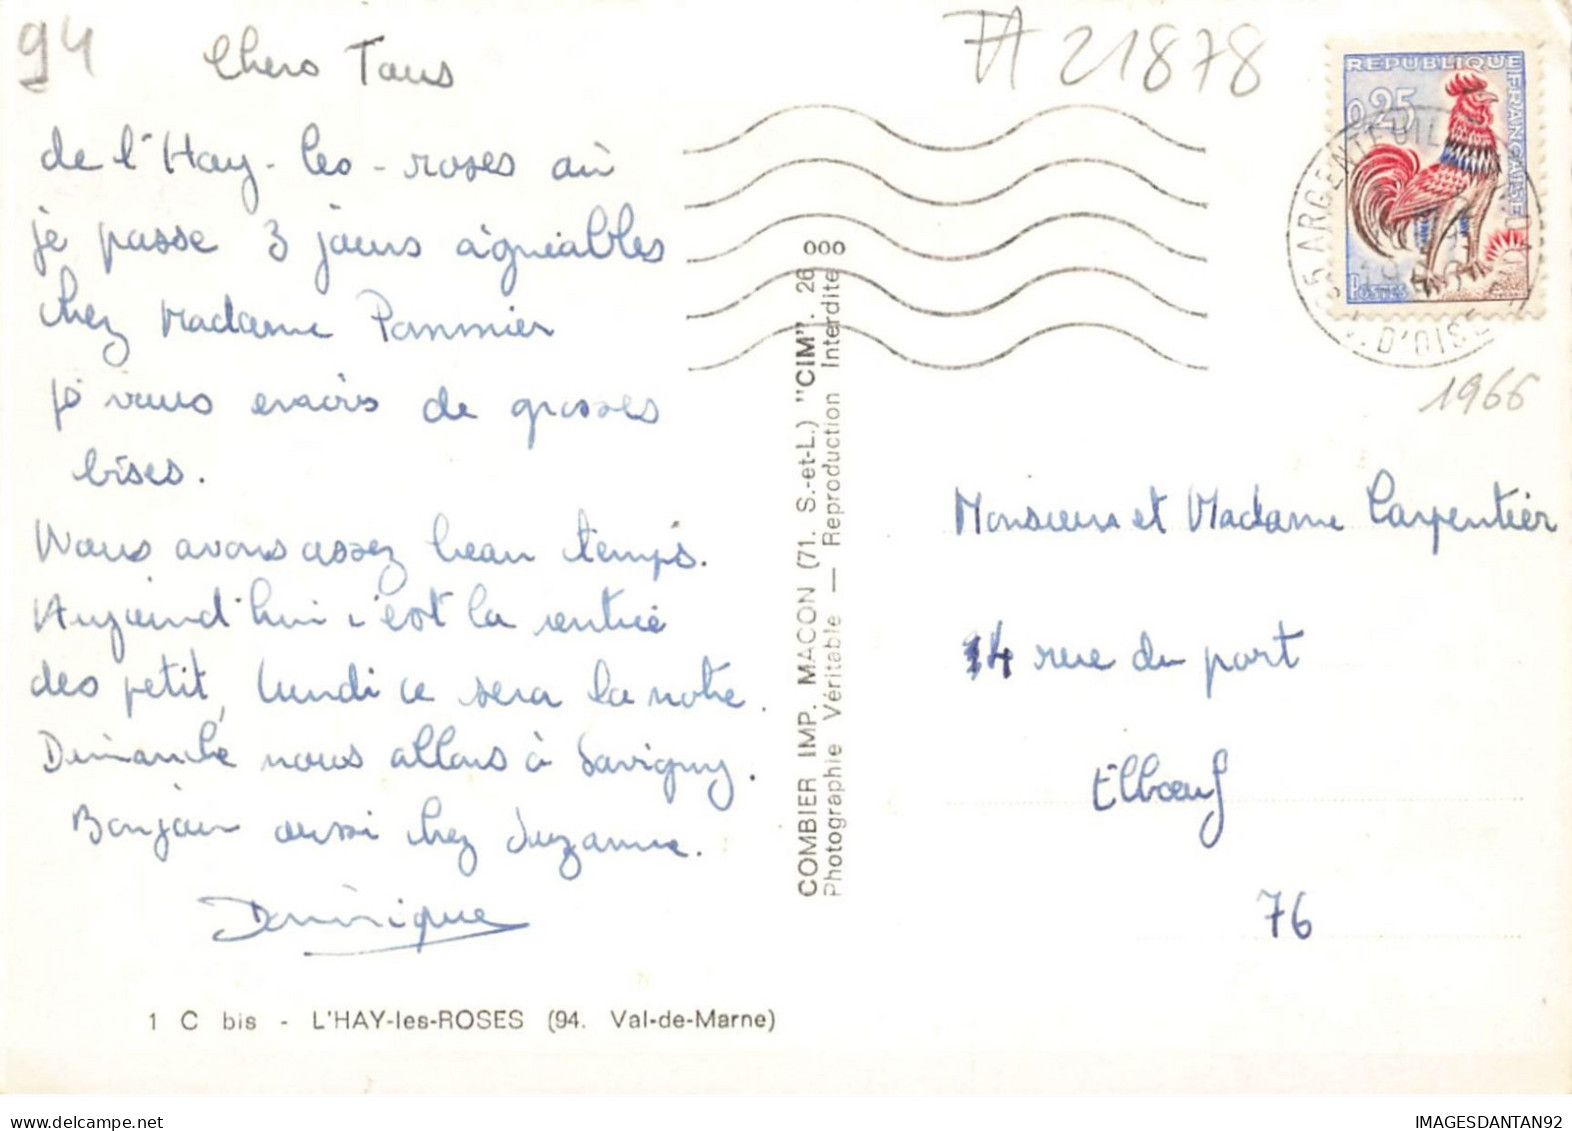 94
Chers Tous
# 21878
de l'Hay-les-roses où
je passe 3 jours agréables
chez Madame Pommier
je vous envoie de grosses
bises.
Nous avons assez beau temps.
Aujourd'hui c'est la rentrée
des petit, lundi ce sera la notre.
Dimanche nous allons à Savigny.
Bonjour aussi chez Suzanne.
Dominique
1 C bis - L'HAY-les-ROSES (94. Val-de-Marne)
COMBIER IMP. MACON (71. S.-et-L.) "CIM". 26 000
Photographie Véritable — Reproduction Interdite
REPUBLIQUE FRANÇAISE
0,25
POSTES
95 ARGENTEUIL
D'OISE
1966
Monsieur et Madame Carpentier
14 rue du port
Elboeuf
76
IMAGESDANTAN92